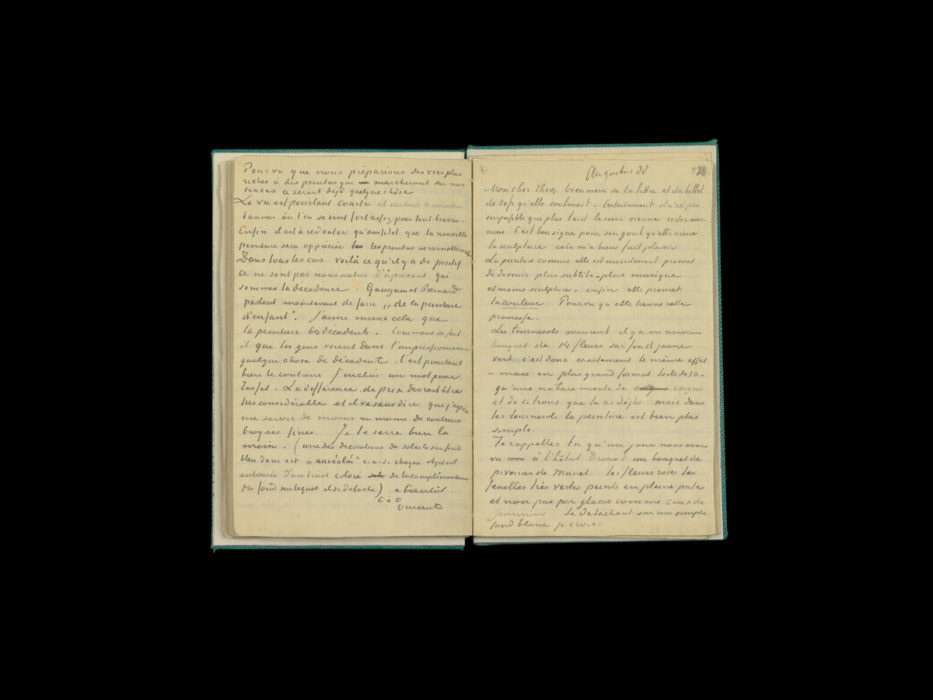 Pourvu que nous préparions des vies plus
riches à des peintres qui marcheront sur nos
traces ce serait déjà quelque chose
La vie est pourtant courte et surtout le nombre
d'années où l'on se sent fort assez pour tout braver.
Enfin il est à redouter qu'aussitot que la nouvelle
peinture sera appréciée les peintres se ramolliront.
Dans tous les cas voilà ce qu'il y a de positif
ce ne sont pas nous autres d'à présent qui
sommes la décadence. Gauguin et Bernard
parlent maintenant de faire „de la peinture
d'enfant”. J'aime mieux cela que
la peinture des décadents. Comment se fait
il que les gens voient dans l'impressionnisme
quelque chose de décadent. C'est pourtant
bien le contraire J'inclus un mot pour
Tasset. La différence de prix devrait être
très considérable et il va sans dire que j'espère
me servir de moins en moins de couleurs
broyées fines. Je te serre bien la
main. (une des décorations de soleils sur fond
bleu de roi est „auréolée” c.a.d. chaque objet est
entourée d'un trait coloré de la complémentaire
du fond sur lequel il se détache) a bientôt
t. à t.
Vincent
Augustus 88
Mon cher Theo, bien merci de ta lettre et du billet
de 50 fr qu'elle contenait. Certainement il n'est pas
impossible que plus tard la soeur vienne rester avec
nous. C'est bon signe pour son gout qu'elle aime
la sculpture cela m'a bien fait plaisir
La peinture comme elle est maintenant promet
de devenir plus subtile – plus musique
et moins sculpture – enfin elle promet
la couleur. Pourvu qu'elle tienne cette
promesse.
Les tournesols avancent il y a un nouveau
bouquet de 14 fleurs sur fond jaune
vert c'est donc exactement le même effet
– mais en plus grand format toile de 30 –
qu'une nature morte de coings
et de citrons que tu as déjà mais dans
les tournesols la peinture est bien plus
simple.
Te rappelles tu qu'un jour nous avons
vu à l'hôtel Drouot un bouquet de
pivoines de Manet. Les fleurs roses les
feuilles très vertes peints en pleine pate
et non pas par glacis comme ceux de
Jeannin Se détachant sur un simple
fond blanc je crois.